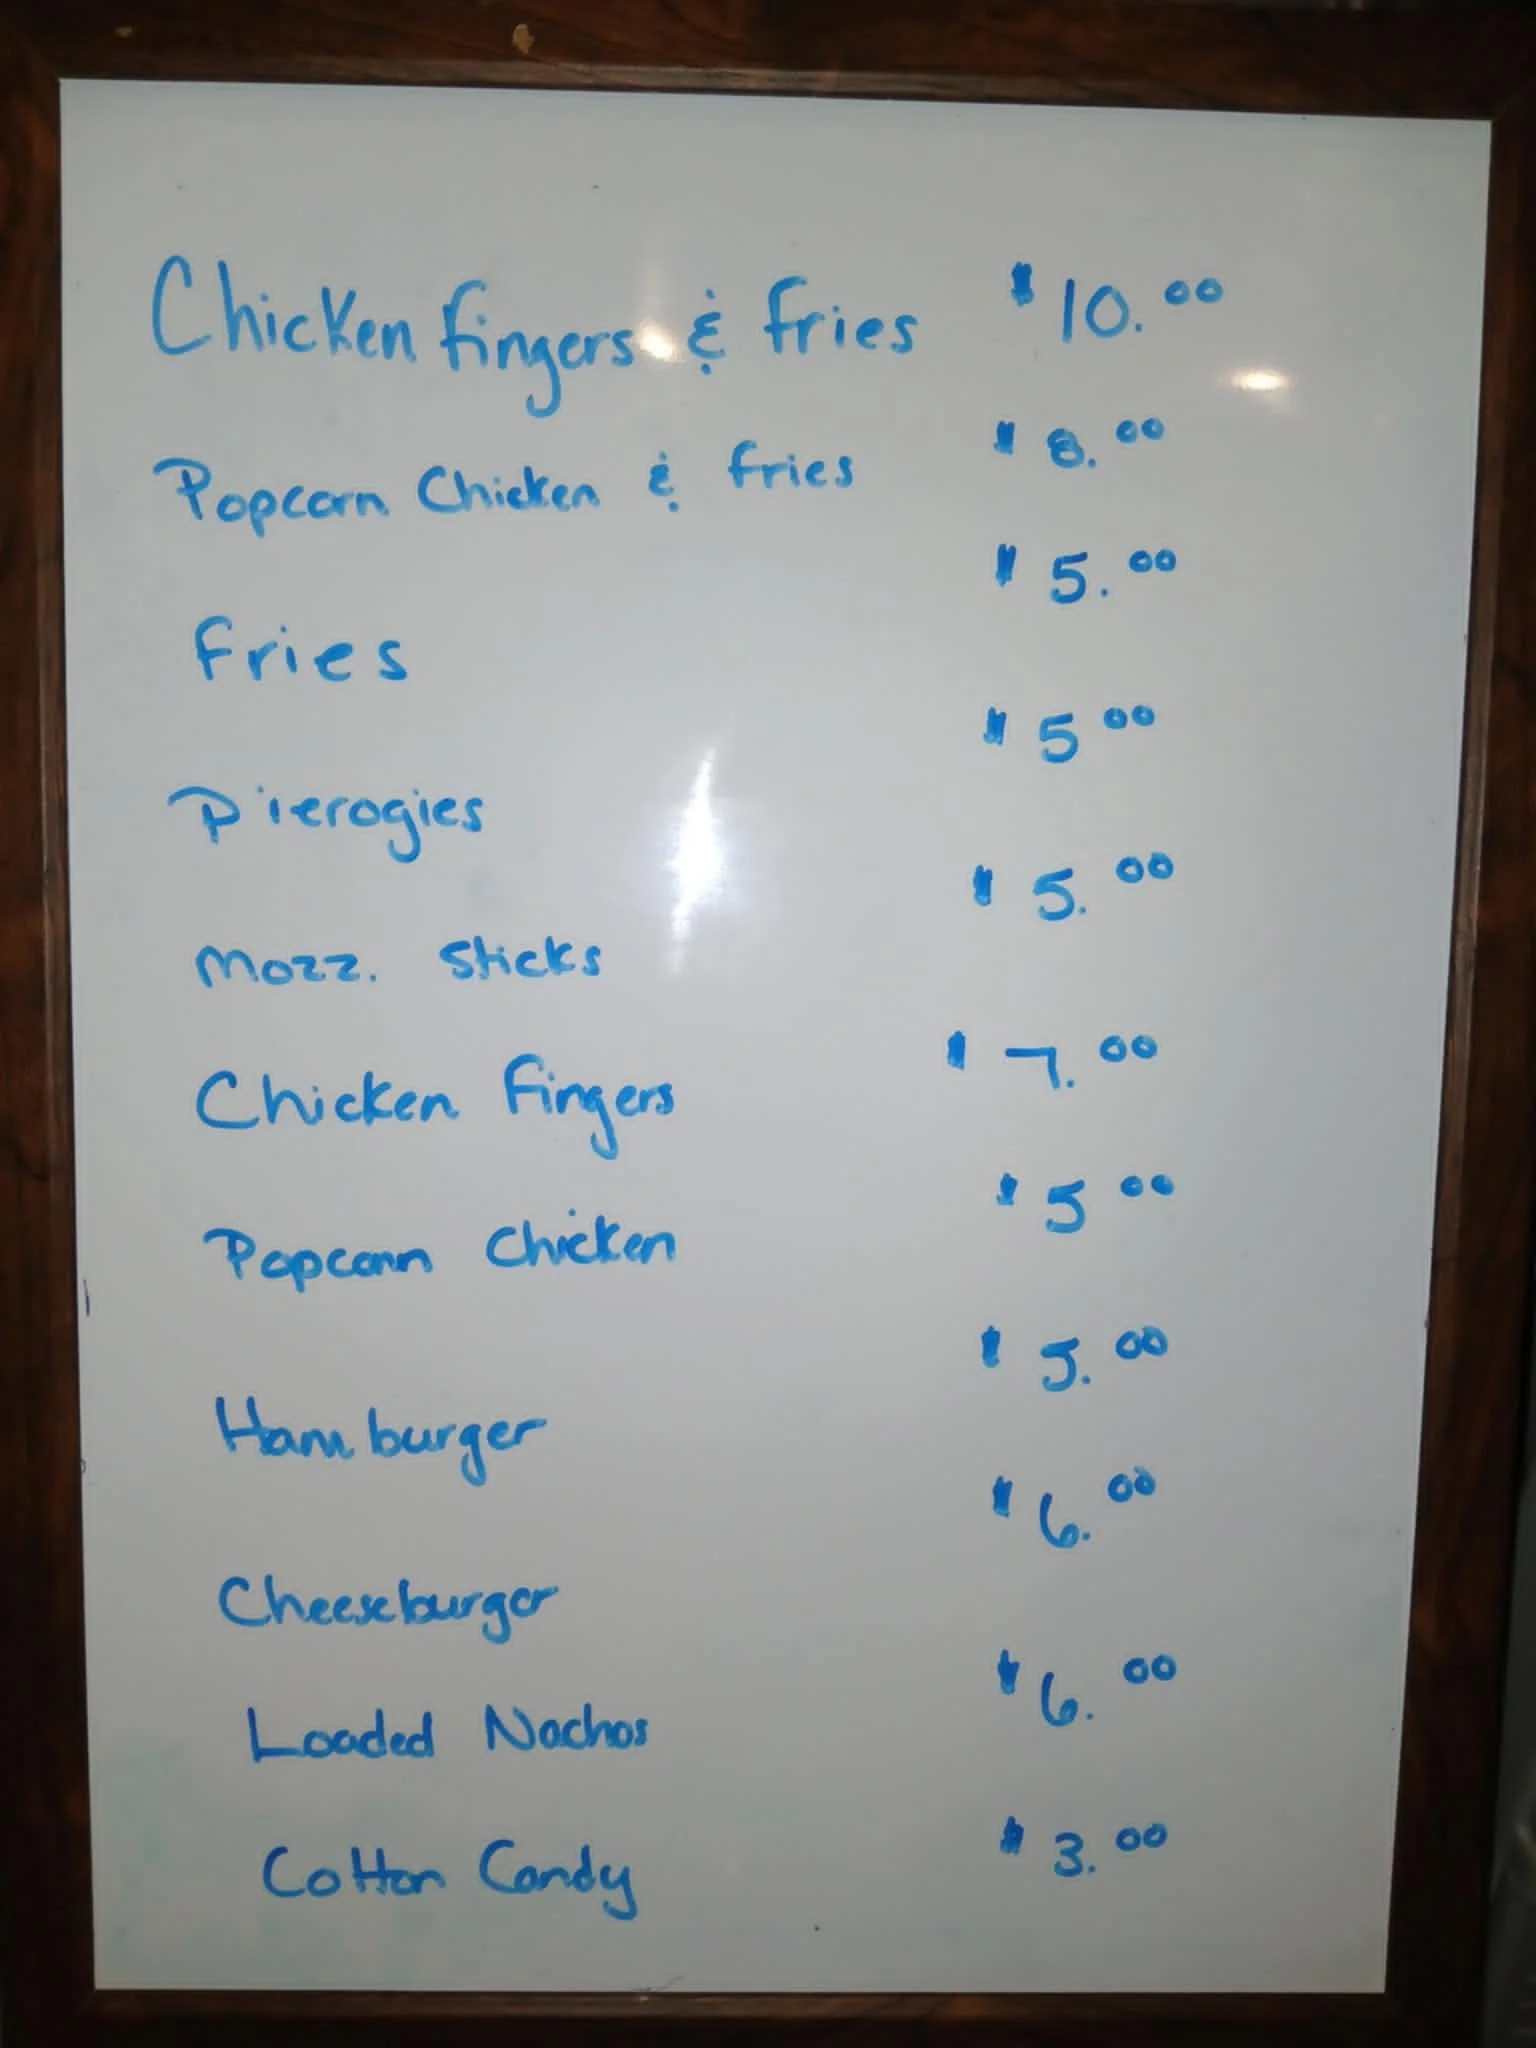 Chicken fingers & fries $10.00
Popcorn Chicken & fries $8.00
fries $5.00
Pierogies $5 00
Mozz. Sticks $5.00
Chicken fingers $7.00
Popcorn Chicken $5 00
Hamburger $5.00
Cheeseburger $6.00
Loaded Nachos $6.00
Cotton Candy $3.00